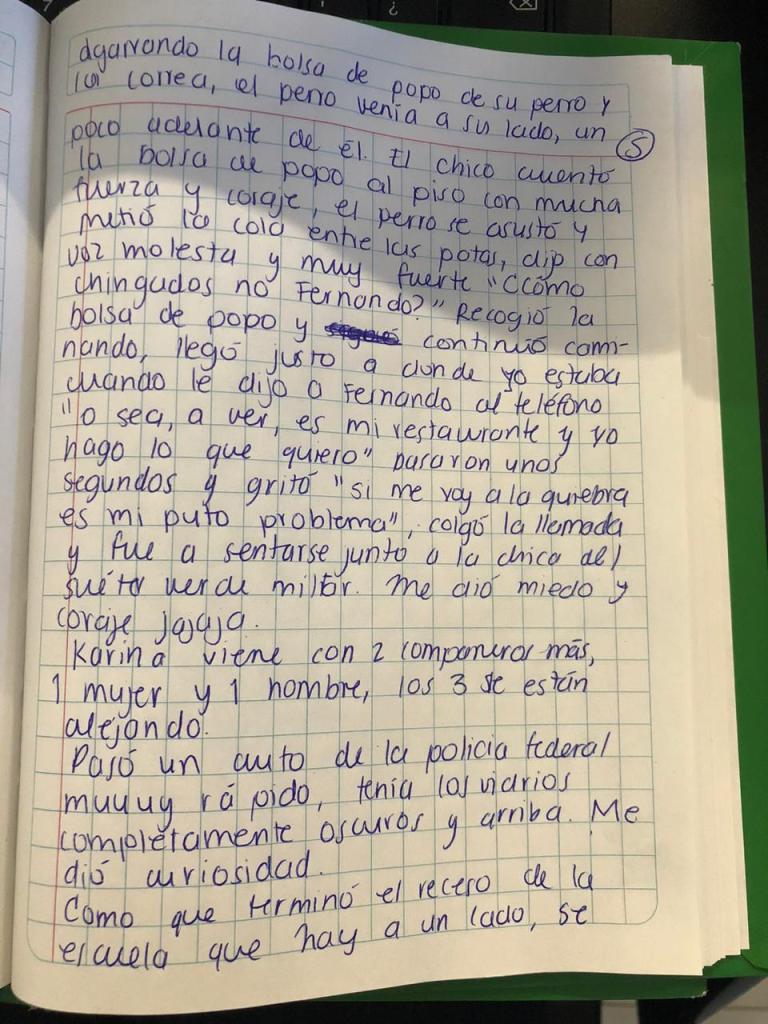 agarrando la bolsa de popo de su perro y
la correa, el perro venía a su lado, un
5
poco adelante de él. El chico aventó
la bolsa de popo al piso con mucha
fuerza y coraje, el perro se asustó y
metió la cola entre las patas, dijo con
voz molesta y muy fuerte "¿Cómo
chingados no Fernando?" Recogió la
bolsa de popo y continuó cami-
nando, llegó justo a donde yo estaba
cuando le dijo a Fernando al teléfono
"o sea, a ver, es mi restaurante y yo
hago lo que quiero" pasaron unos
segundos y gritó "si me voy a la quiebra
es mi puto problema", colgó la llamada
y fue a sentarse junto a la chica del
suéter verde militar. Me dió miedo y
coraje jajaja.
Karina viene con 2 compañeros más,
1 mujer y 1 hombre, los 3 se están
alejando.
Pasó un auto de la policia federal
muuuy rápido, tenía los vidrios
completamente oscuros y arriba. Me
dió curiosidad.
Como que terminó el receso de la
escuela que hay a un lado, se